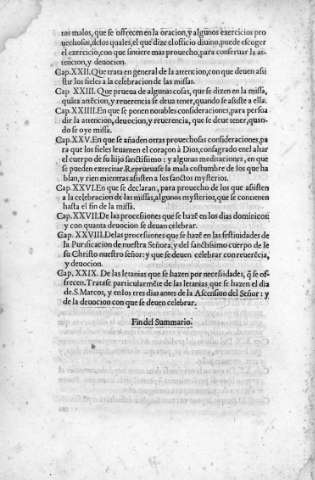 tos malos, que se offrecen en la oracion, y algunos exercicios pro
uechosos, delos quales, el que dize el officio diuino, puede escoger
el exercicio, con que sintiere mas prouecho, para conseruar la at-
tencion, y deuocion.
Cap. XXII. Que trata en general de la attencion, con que deuen asi
stir los fieles a la celebracion de las missas.
Cap. XXIII. Que prueua de algunas cosas, que se dizen en la missa,
quāta atēcion, y reuerencia se deue tener, quando se asiste a ella.
Cap. XXIIII. En que se ponen notables consideraciones, para persua
dir la attencion, deuocion, y reuerencia, que se deue tener, quan-
do se oye missa.
Cap. XXV. En que se añaden otras prouechosas consideraciones, pa
ra que los fieles leuanten el coraçon à Dios, consagrado en el altar
el cuerpo de su hijo sanctissimo: y algunas meditaciones, en que
se pueden exercitar. Reprueuase la mala costumbre de los que ha
blan, y rien mientras asisten a los sanctos mysterios.
Cap. XXVI. En que se declaran, para prouecho de los que asisten
a la celebracion de las missas, algunos mysterios, que se contienen
hasta el fin de la missa.
Cap. XXVII. De las processiones que se hazē en los dias domínicos:
y con quanta deuocion se deuan celebrar.
Cap. XXVIII. Delas processiones que se hazē en las festiuidades de
la Purificacion de nuestra Señora, y del sanctissimo cuerpo de Ie
su Christo nuestro señor: y que se deuen celebrar con reuerēcia,
y deuocion.
Cap. XXIX. De las letanias que se hazen por necesidades, q̄ se of-
frecen. Tratase particularmēte de las letanias que se hazen el dia
de S. Marcos, y en los tres dias antes de la Ascension del Señor: y
de la deuocion con que se deuen celebrar.
Fin del Summario.